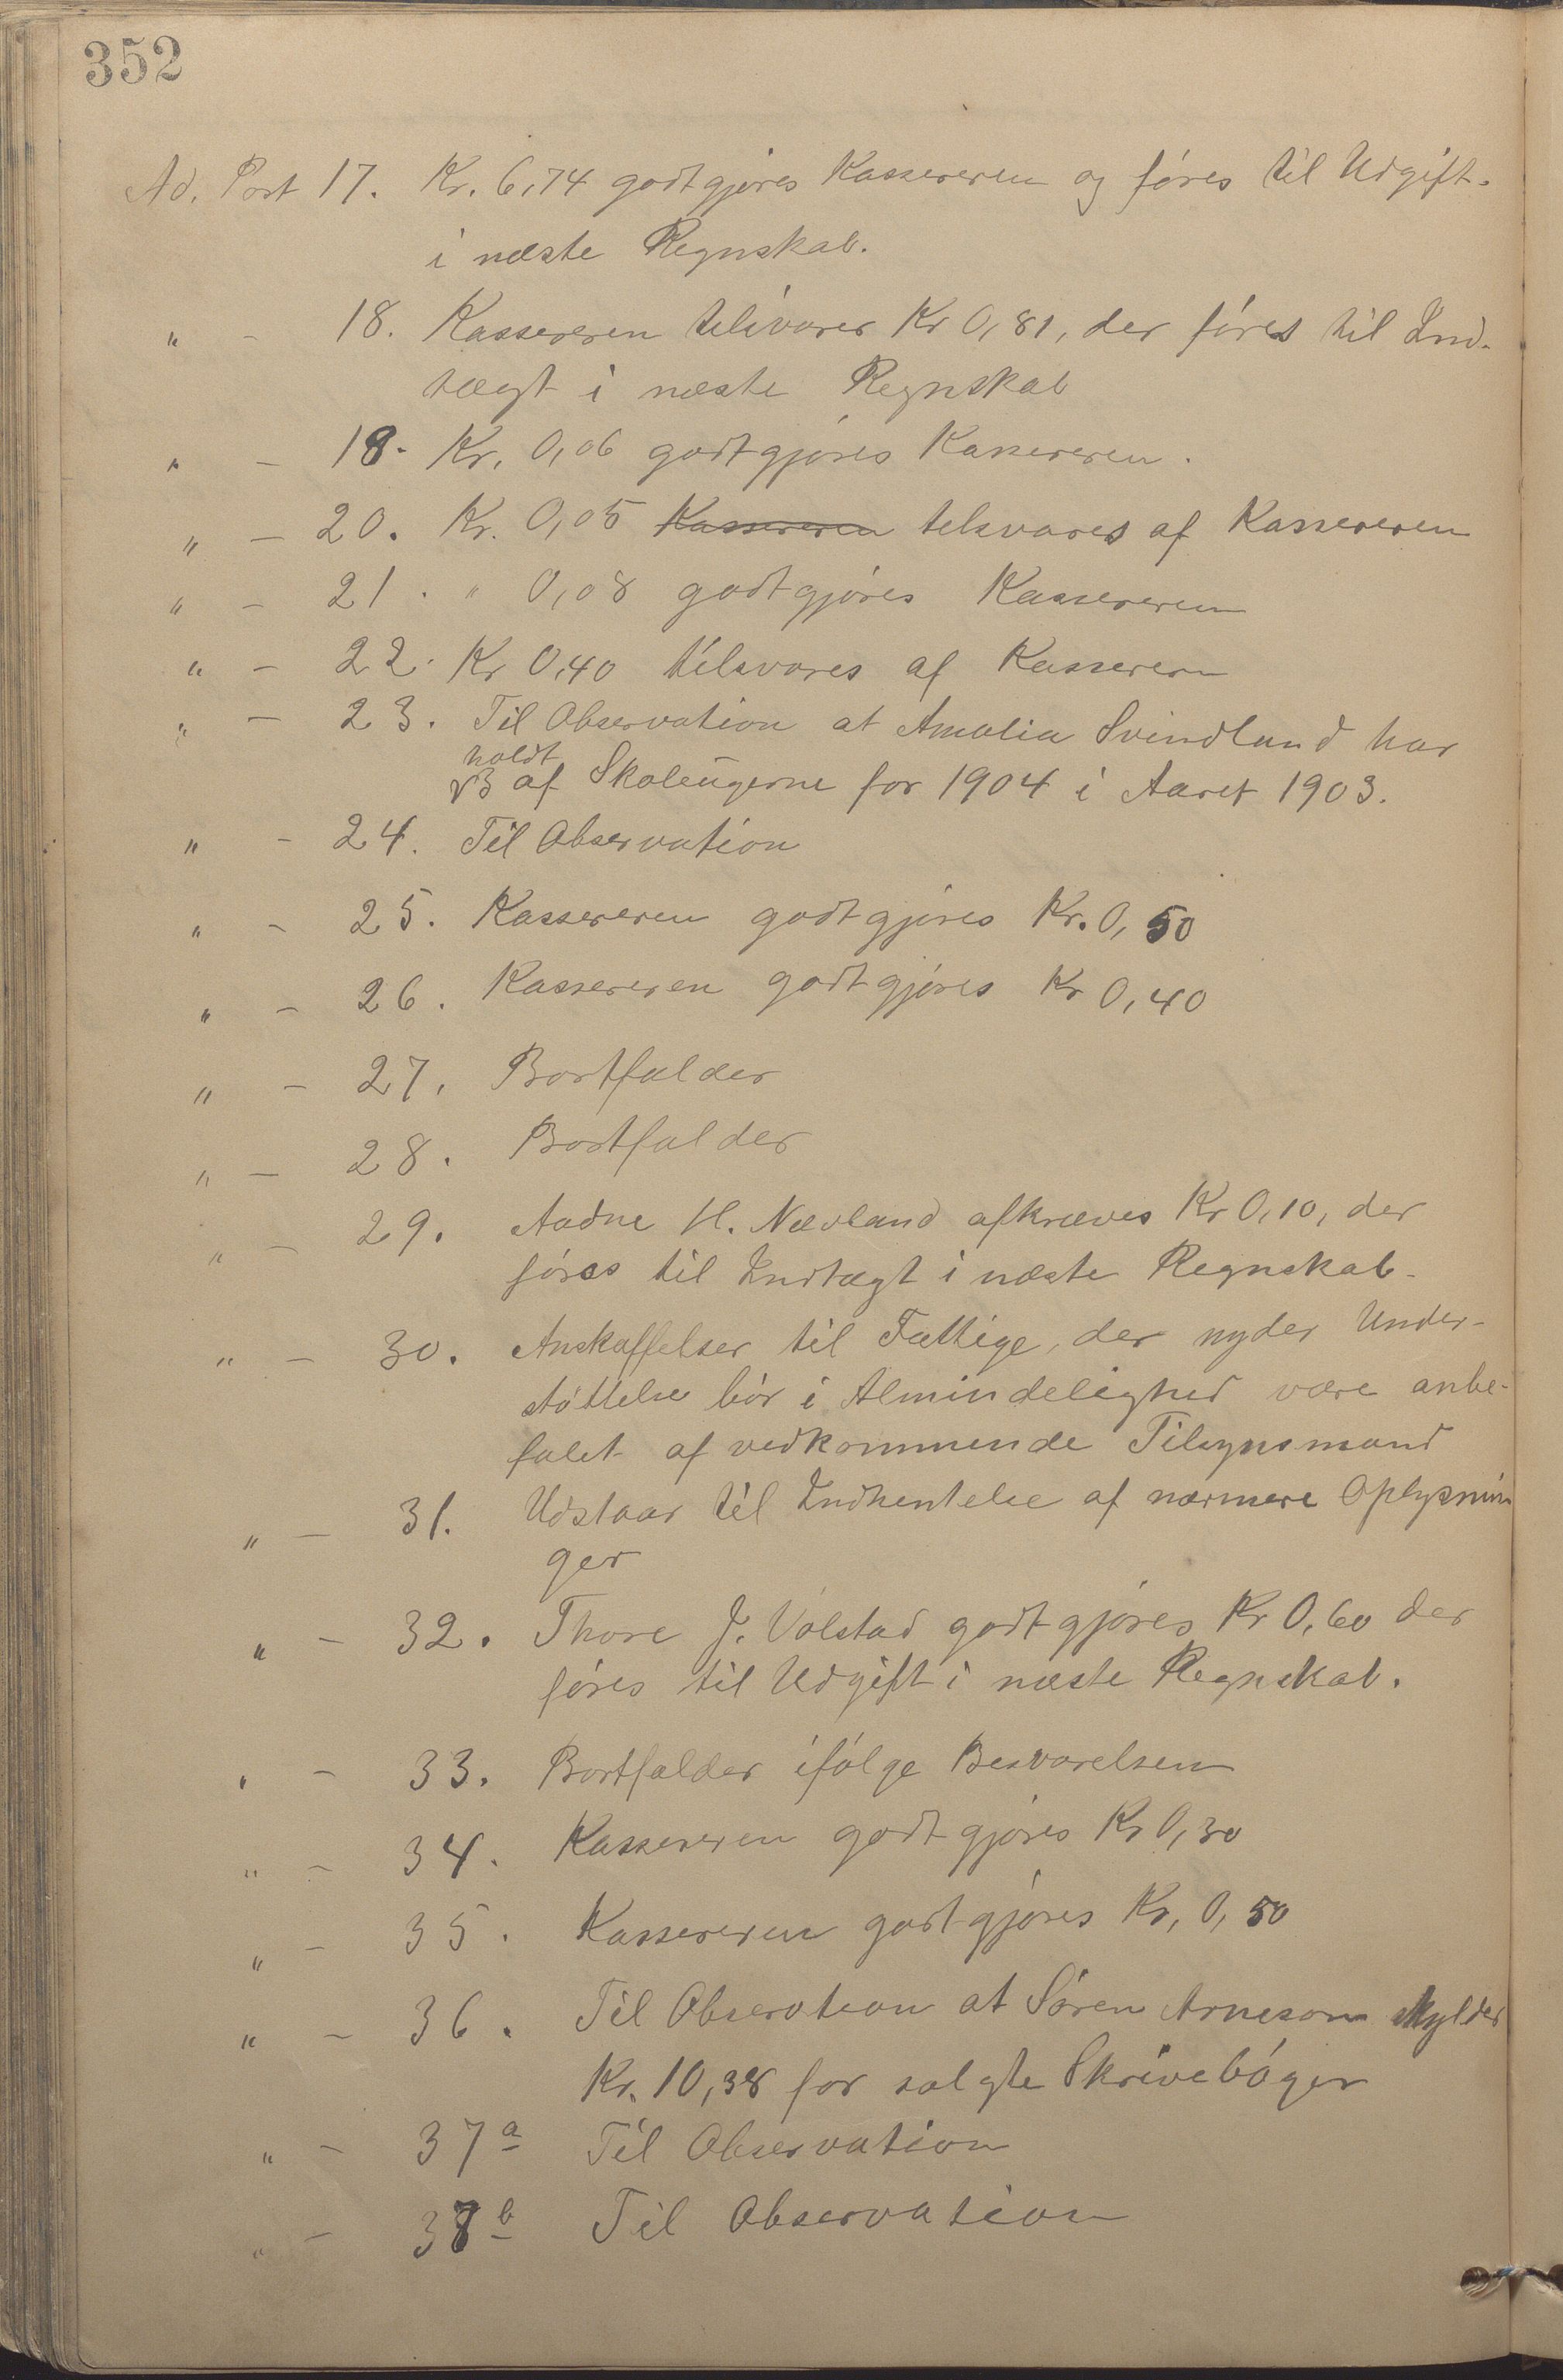 352
Ad. Post 17. Kr. 6,74 godtgjøres Kassereren og føres til Udgift.
i næste Regnskab.
" - 18. Kassereren tilsvarer Kr 0,81, der føres til Ind-
tægt i næste Regnskab
" - 18. Kr. 0,06 godtgjøres Kassereren.
" - 20. Kr. 0,05 Kassereren tilsvares af Kassereren
" - 21. " 0,08 godtgjøres Kassereren
" - 22. Kr 0,40 tilsvares af Kassereren
" - 23. Til Observation at Amalia Svindland har
holdt
af Skoleugerne for 1904 i Aaret 1903.
" - 24. Til Observation
" - 25. Kassereren godtgjøres Kr. 0,50
" - 26. Kassereren godtgjøres Kr 0,40
" - 27. Bortfalder
" - 28. Bortfalder
" - 29. Aadne H. Nævland afkræves Kr 0,10, der
føres til Indtægt i næste Regnskab.
" - 30. Anskaffelser til Fattige, der nyder Under-
støttelse bør i Almindelighed være anbe-
falet af vedkommende Tilsynsmand
" - 31. Udstaar til Indhentelse af nærmere Oplysnin
ger
" - 32. Thore J. Valstad godtgjøres Kr 0,60 der
føres til Udgift i næste Regnskab.
" - 33. Bortfalder ifølge Besvarelsen
" - 34. Kassereren godtgjøres Kr 0,30
" - 35. Kassereren godtgjøres Kr, 0,50
" - 36. Til Observation at Søren Arneson skylder
Kr. 10,38 for solgte Skrivebøger
" - 37a Til Observation
" - 37b Til Observation